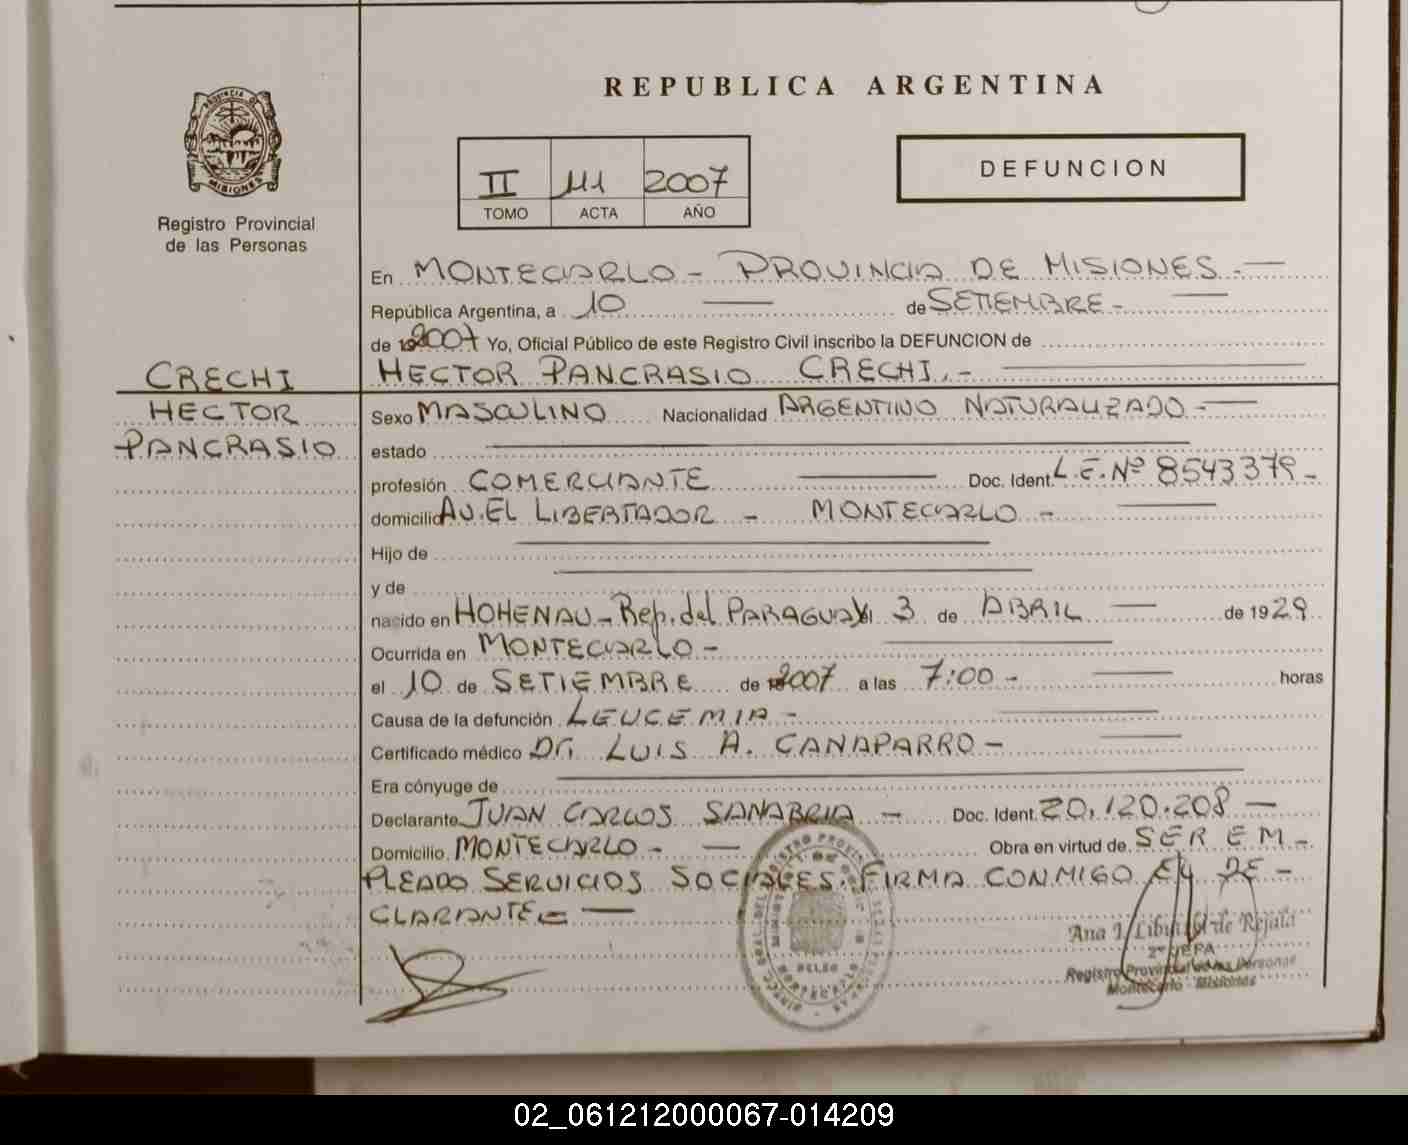 REPUBLICA ARGENTINA
PROVINCIA DE
MISIONES
Registro Provincial
de las Personas
II 111 2007
TOMO ACTA AÑO
DEFUNCION
En MONTECARLO - PROVINCIA DE MISIONES.-
República Argentina, a 10 de SETIEMBRE-
de 2007 Yo, Oficial Público de este Registro Civil inscribo la DEFUNCION de
HECTOR PANCRASIO CRECHI.-
CRECHI
HECTOR
PANCRASIO
Sexo MASCULINO Nacionalidad ARGENTINO NATURALIZADO-
estado
profesión COMERCIANTE Doc. Ident. L.E.Nº 8543379-
domicilio AV. EL LIBERTADOR - MONTECARLO -
Hijo de
y de
nacido en HOHENAU - Rep. del PARAGUAY el 3 de ABRIL de 1929
Ocurrida en MONTECARLO -
el 10 de SETIEMBRE de 2007 a las 7:00 - horas
Causa de la defunción LEUCEMIA -
Certificado médico Dr. LUIS A. CANAPARRO -
Era cónyuge de
Declarante JUAN CARLOS SANABRIA - Doc. Ident. 20.120.208
Domicilio MONTECARLO - Obra en virtud de SER EM-
PLEADO SERVICIOS SOCIALES. FIRMA CONMIGO EL DE-
CLARANTE.-
Ana I. de
Registro Provincial de las Personas
Montecarlo - Misiones
02_061212000067-014209